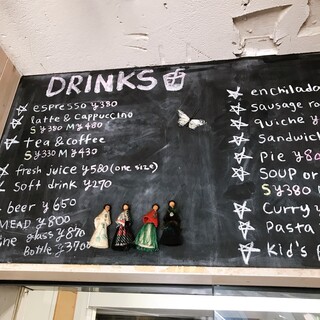 DRINKS
espresso ¥380
latte & cappuccino
S ¥380 M ¥480
tea & coffee
S ¥330 M ¥430
fresh juice ¥580 (one size)
soft drink ¥270
beer ¥650
MEAD ¥800
glass ¥870
Bottle ¥3700
enchilada
sausage ro
quiche ¥
sandwich
Pie ¥
soup or
S ¥380
Curry ¥
Pasta
Kid's